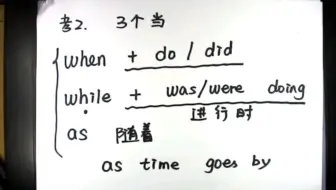 考2. 3个当
when + do / did
while + was/were doing
进行时
as 随着
as time goes by